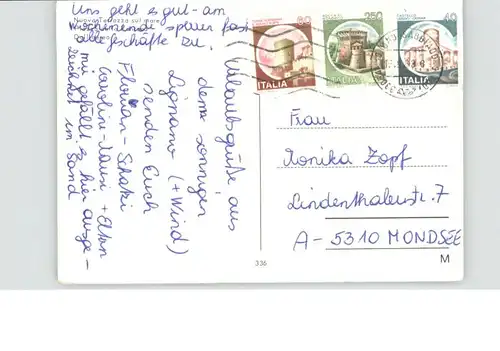 Uns geht es gut - am
wochenende sperren fast
alle geschäfte zu.
Nuova Terrazza sul mare
Urlaubsgrüße aus
dem sonnigen
Lignano (+Wind)
senden Euch
Florian - Schatzi
Caroline - Mausi + Eltern
mir gefällt es hier ausge-
zeichnet im Sand
60
ITALIA
250
ITALIA
40
ITALIA
Frau
Monika Zopf
Lindenthalerstr. 7
A-5310 MONDSEE
336
M